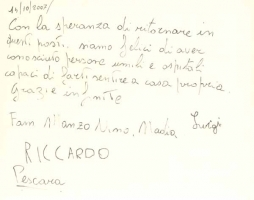 14/10/2007
Con la speranza di ritornare in
questi posti, siamo felici di aver
conosciuto persone umili e ospitali
capaci di farti sentire a casa propria.
Grazie infinite
Fam Manzo Nino, Nadia Luigi
RICCARDO
Pescara